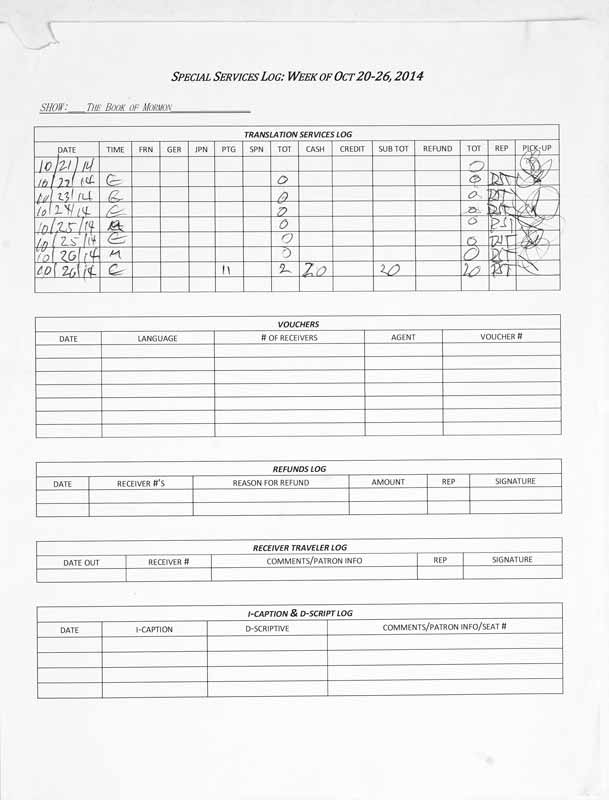 SPECIAL SERVICES LOG: WEEK OF OCT 20-26, 2014
SHOW: THE BOOK OF MORMON
TRANSLATION SERVICES LOG
DATE TIME FRN GER JPN PTG SPN TOT CASH CREDIT SUB TOT REFUND TOT REP PICK-UP
10/21/14 0
10/22/14 E 0 0 DST
10/23/14 E 0 0 DST
10/24/14 E 0 0 DST
10/25/14 M 0 0 DST
10/25/14 E 0 0 DST
10/26/14 M 0 0 DST
10/26/14 E 11 2 20 20 20 DST
VOUCHERS
DATE LANGUAGE # OF RECEIVERS AGENT VOUCHER #
REFUNDS LOG
DATE RECEIVER #'S REASON FOR REFUND AMOUNT REP SIGNATURE
RECEIVER TRAVELER LOG
DATE OUT RECEIVER # COMMENTS/PATRON INFO REP SIGNATURE
I-CAPTION & D-SCRIPT LOG
DATE I-CAPTION D-SCRIPTIVE COMMENTS/PATRON INFO/SEAT #